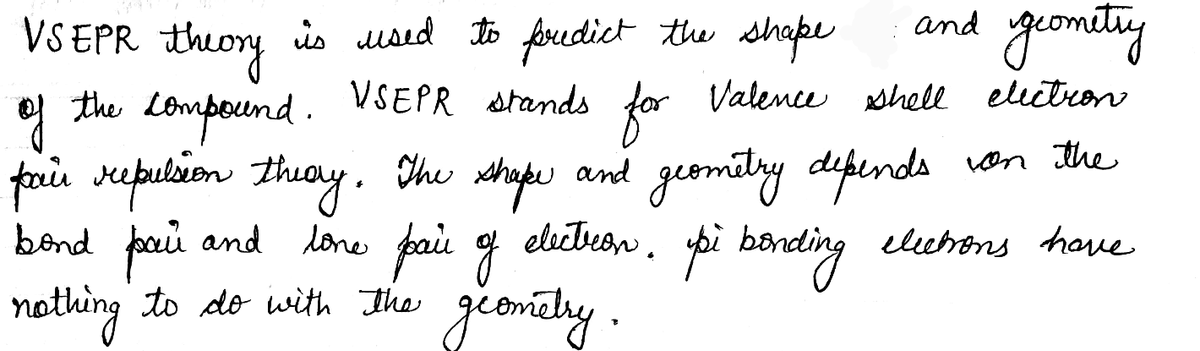 VSEPR theory is used to predict the shape and geometry
of the compound. VSEPR stands for Valence shell electron
pair repulsion theory. The shape and geometry depends on the
bond pair and lone pair of electron. pi bonding electrons have
nothing to do with the geometry.